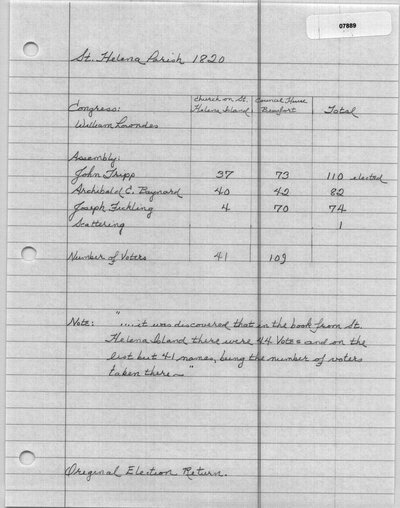 07889
St. Helena Parish 1820
Church on St. Council House
Congress: Helena Island Beaufort Total
William Lowndes
Assembly:
John Fripp 37 73 110 elected
Archibald C. Baynard 40 42 82
Joseph Fickling 4 70 74
Scattering 1
Number of Voters 41 109
Note: "....it was discovered that in the book from St.
Helena Island there were 44 Votes and on the
list but 41 names, being the number of voters
taken there—"
Original Election Return.